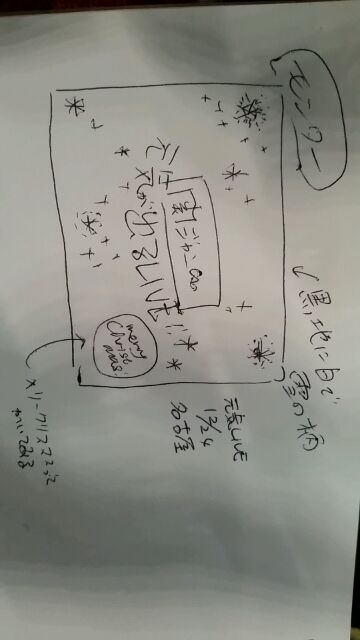 モニター
黒地に白で
雪の柄
関ジャニ∞
元気が出るLIVE!!
merry
Christ
mas!
元気LIVE
12/24
名古屋
メリークリスマスって
かいてある